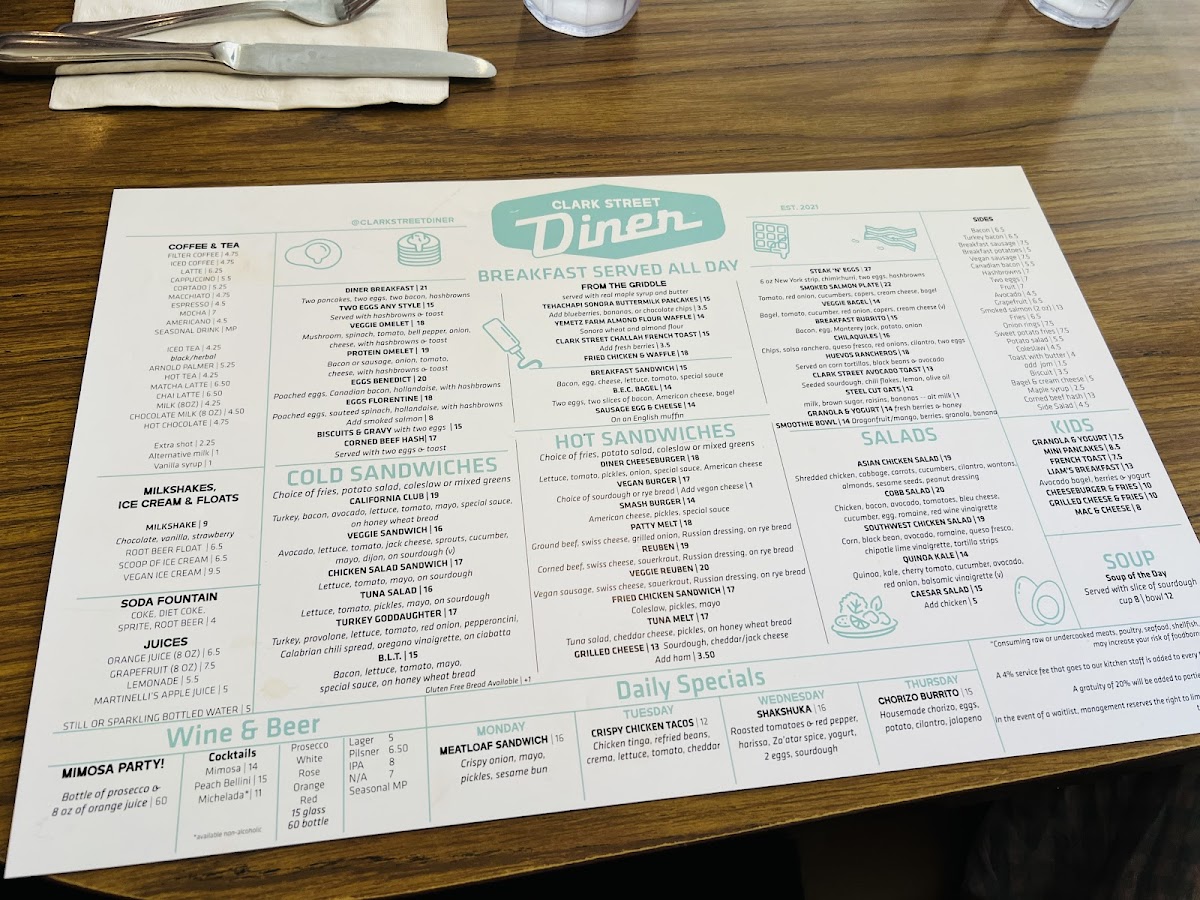 @CLARKSTREETDINER
CLARK STREET
Diner
EST. 2021
COFFEE & TEA
FILTER COFFEE | 4.75
ICED COFFEE | 4.75
LATTE | 6.25
CAPPUCCINO | 5.5
CORTADO | 5.25
MACCHIATO | 4.75
ESPRESSO | 4.5
MOCHA | 7
AMERICANO | 4.5
SEASONAL DRINK | MP
ICED TEA | 4.25
black/herbal
ARNOLD PALMER | 5.25
HOT TEA | 4.25
MATCHA LATTE | 6.50
CHAI LATTE | 6.50
MILK (8OZ) | 4.25
CHOCOLATE MILK (8 OZ) | 4.50
HOT CHOCOLATE | 4.75
Extra shot | 2.25
Alternative milk | 1
Vanilla syrup | 1
MILKSHAKES,
ICE CREAM & FLOATS
MILKSHAKE | 9
Chocolate, vanilla, strawberry
ROOT BEER FLOAT | 6.5
SCOOP OF ICE CREAM | 6.5
VEGAN ICE CREAM | 9.5
SODA FOUNTAIN
COKE, DIET COKE,
SPRITE, ROOT BEER | 4
JUICES
ORANGE JUICE (8 OZ) | 6.5
GRAPEFRUIT (8 OZ) | 7.5
LEMONADE | 5.5
MARTINELLI'S APPLE JUICE | 5
STILL OR SPARKLING BOTTLED WATER | 5
BREAKFAST SERVED ALL DAY
DINER BREAKFAST | 21
Two pancakes, two eggs, two bacon, hashbrowns
TWO EGGS ANY STYLE | 15
Served with hashbrowns & toast
VEGGIE OMELET | 18
Mushroom, spinach, tomato, bell pepper, onion,
cheese, with hashbrowns & toast
PROTEIN OMELET | 19
Bacon or sausage, onion, tomato,
cheese, with hashbrowns & toast
EGGS BENEDICT | 20
Poached eggs, Canadian bacon, hollandaise, with hashbrowns
EGGS FLORENTINE | 18
Poached eggs, sauteed spinach, hollandaise, with hashbrowns
Add smoked salmon | 8
BISCUITS & GRAVY with two eggs | 15
CORNED BEEF HASH | 17
Served with two eggs & toast
FROM THE GRIDDLE
served with real maple syrup and butter
TEHACHAPI SONORA BUTTERMILK PANCAKES | 15
Add blueberries, bananas, or chocolate chips | 3.5
YEMETZ FARM ALMOND FLOUR WAFFLE | 14
Sonora wheat and almond flour
CLARK STREET CHALLAH FRENCH TOAST | 15
Add fresh berries | 3.5
FRIED CHICKEN & WAFFLE | 18
BREAKFAST SANDWICH | 15
Bacon, egg, cheese, lettuce, tomato, special sauce
B.E.C. BAGEL | 14
Two eggs, two slices of bacon, American cheese, bagel
SAUSAGE EGG & CHEESE | 14
On an English muffin
STEAK 'N' EGGS | 27
6 oz New York strip, chimichurri, two eggs, hashbrowns
SMOKED SALMON PLATE | 22
Tomato, red onion, cucumbers, capers, cream cheese, bagel
VEGGIE BAGEL | 14
Bagel, tomato, cucumber, red onion, capers, cream cheese (v)
BREAKFAST BURRITO | 15
Bacon, egg, Monterey jack, potato, onion
CHILAQUILES | 16
Chips, salsa ranchero, queso fresco, red onions, cilantro, two eggs
HUEVOS RANCHEROS | 18
Served on corn tortillas, black beans & avocado
CLARK STREET AVOCADO TOAST | 13
Seeded sourdough, chili flakes, lemon, olive oil
STEEL CUT OATS | 12
milk, brown sugar, raisins, bananas -- alt milk | 1
GRANOLA & YOGURT | 14 fresh berries & honey
SMOOTHIE BOWL | 14 Dragonfruit/mango, berries, granola, banana
SIDES
Bacon | 6.5
Turkey bacon | 6.5
Breakfast sausage | 7.5
Breakfast potatoes | 7
Vegan sausage | 7.5
Canadian bacon | 5.5
Hashbrowns | 7
Two eggs | 7
Fruit | 7
Avocado | 4.5
Grapefruit | 6.5
Smoked salmon (2 oz) | 13
Fries | 6.5
Onion rings | 7.5
Sweet potato fries | 7.5
Potato salad | 5.5
Coleslaw | 4.5
Toast with butter | 4
add jam | 1.5
Biscuit | 3.5
Bagel & cream cheese | 5
Maple syrup | 2.5
Corned beef hash | 13
Side Salad | 4.5
COLD SANDWICHES
Choice of fries, potato salad, coleslaw or mixed greens
CALIFORNIA CLUB | 19
Turkey, bacon, avocado, lettuce, tomato, mayo, special sauce,
on honey wheat bread
VEGGIE SANDWICH | 16
Avocado, lettuce, tomato, jack cheese, sprouts, cucumber,
mayo, dijon, on sourdough (v)
CHICKEN SALAD SANDWICH | 17
Lettuce, tomato, mayo, on sourdough
TUNA SALAD | 16
Lettuce, tomato, pickles, mayo, on sourdough
TURKEY GODDAUGHTER | 17
Turkey, provolone, lettuce, tomato, red onion, pepperoncini,
Calabrian chili spread, oregano vinaigrette, on ciabatta
B.L.T. | 15
Bacon, lettuce, tomato, mayo,
special sauce, on honey wheat bread
Gluten Free Bread Available | +1
HOT SANDWICHES
Choice of fries, potato salad, coleslaw or mixed greens
DINER CHEESEBURGER | 18
Lettuce, tomato, pickles, onion, special sauce, American cheese
VEGAN BURGER | 17
Choice of sourdough or rye bread | Add vegan cheese | 1
SMASH BURGER | 14
American cheese, pickles, special sauce
PATTY MELT | 18
Ground beef, swiss cheese, grilled onion, Russian dressing, on rye bread
REUBEN | 19
Corned beef, swiss cheese, sauerkraut, Russian dressing, on rye bread
VEGGIE REUBEN | 20
Vegan sausage, swiss cheese, sauerkraut, Russian dressing, on rye bread
FRIED CHICKEN SANDWICH | 17
Coleslaw, pickles, mayo
TUNA MELT | 17
Tuna salad, cheddar cheese, pickles, on honey wheat bread
GRILLED CHEESE | 13 Sourdough, cheddar/jack cheese
Add ham | 3.50
SALADS
ASIAN CHICKEN SALAD | 19
Shredded chicken, cabbage, carrots, cucumbers, cilantro, wontons,
almonds, sesame seeds, peanut dressing
COBB SALAD | 20
Chicken, bacon, avocado, tomatoes, bleu cheese,
cucumber, egg, romaine, red wine vinaigrette
SOUTHWEST CHICKEN SALAD | 19
Corn, black bean, avocado, romaine, queso fresco,
chipotle lime vinaigrette, tortilla strips
QUINOA KALE | 14
Quinoa, kale, cherry tomato, cucumber, avocado,
red onion, balsamic vinaigrette (v)
CAESAR SALAD | 15
Add chicken | 5
KIDS
GRANOLA & YOGURT | 7.5
MINI PANCAKES | 8.5
FRENCH TOAST | 7.5
LIAM'S BREAKFAST | 13
Avocado bagel, berries & yogurt
CHEESEBURGER & FRIES | 10
GRILLED CHEESE & FRIES | 10
MAC & CHEESE | 8
SOUP
Soup of the Day
Served with slice of sourdough
cup 8 | bowl 12
*Consuming raw or undercooked meats, poultry, seafood, shellfish,
may increase your risk of foodborn
A 4% service fee that goes to our kitchen staff is added to every
A gratuity of 20% will be added to partie
In the event of a waitlist, management reserves the right to lim
Wine & Beer
MIMOSA PARTY!
Bottle of prosecco &
8 oz of orange juice | 60
Cocktails
Mimosa | 14
Peach Bellini | 15
Michelada* | 11
*available non-alcoholic
Prosecco
White
Rose
Orange
Red
15 glass
60 bottle
Lager 5
Pilsner 6.50
IPA 8
N/A 7
Seasonal MP
Daily Specials
MONDAY
MEATLOAF SANDWICH | 16
Crispy onion, mayo,
pickles, sesame bun
TUESDAY
CRISPY CHICKEN TACOS | 12
Chicken tinga, refried beans,
crema, lettuce, tomato, cheddar
WEDNESDAY
SHAKSHUKA | 16
Roasted tomatoes & red pepper,
harissa, Za'atar spice, yogurt,
2 eggs, sourdough
THURSDAY
CHORIZO BURRITO | 15
Housemade chorizo, eggs,
potato, cilantro, jalapeno